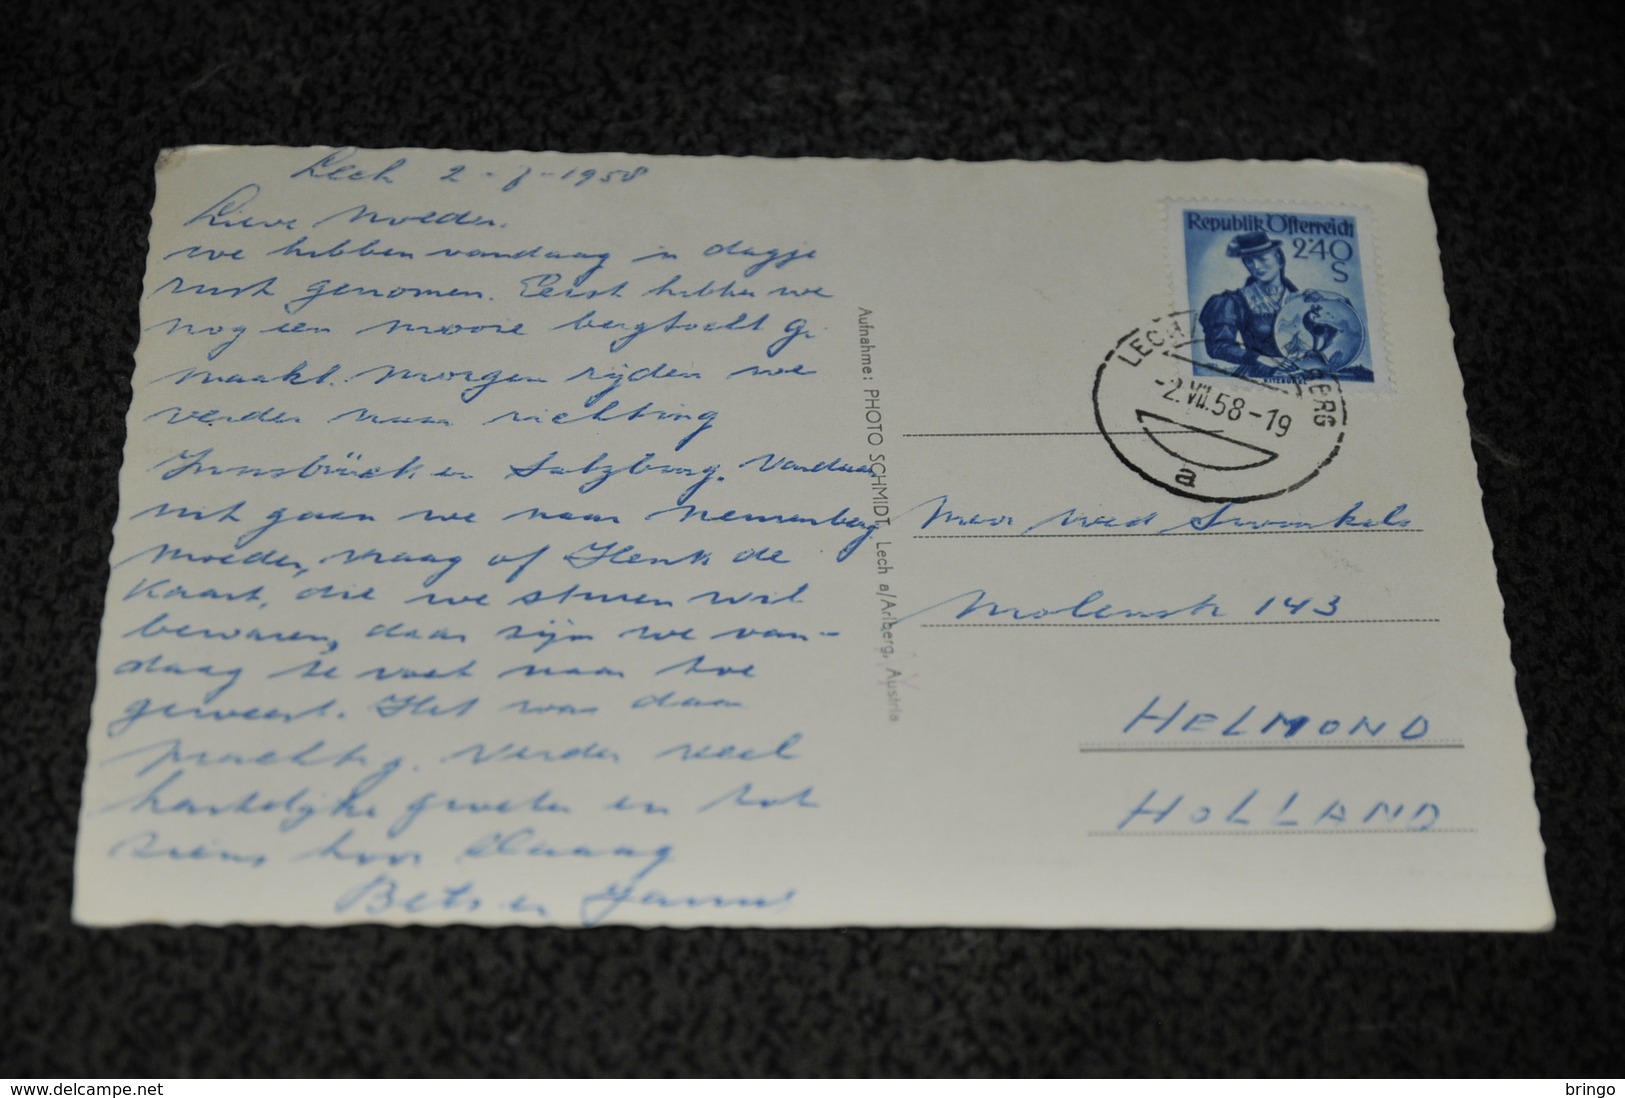 Lech 2-7-1958
Lieve Moeder.
we hebben vandaag 'n dagje
rust genomen. Eerst hebben we
nog een mooie bergtocht ge
maakt. Morgen rijden we
verder naar richting
Innsbrück en Salzburg. Vandaar
uit gaan we naar Neurenberg
Moeder, vraag of Henk de
Kaart, die we sturen wil
bewaren, daar zijn we van-
daag te voet naar toe
geweest. Het was daar
prachtig. Verder veel
hartelijke groeten en tot
ziens hoor
Bets en
Aufnahme: PHOTO SCHMIDT, Lech a/Arlberg, Austria
Republik Österreich
2·40
S
KITZBÜHEL
LECH BERG
-2.VII.58-19
a
Mevr wed Swinkels
Molenstr 143
HELMOND
HOLLAND
delcampe.net
bringo